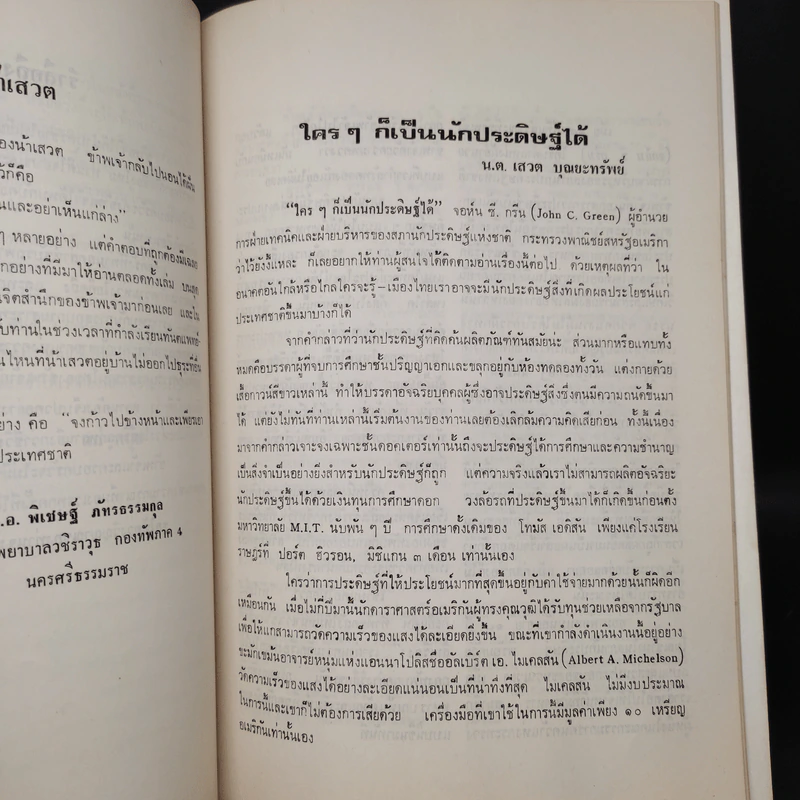 าเสวต
องน้าเสวต ข้าพเจ้ากลับไปนอนได้
วก็คือ
นและอย่าเห็นแก่ล่าง”
ๆ หลายอย่าง แต่คำตอบที่ถูกต้อง
กอย่างที่มีมาให้อ่านตลอดทั้งเล่ม
เจิตสำนึกของข้าพเจ้ามาก่อนเลย และใน
บท่านในช่วงเวลาที่กำลังเรียนทันตแพทย์
นไหนที่น้าเสวตอยู่บ้านไม่ออกไปธุระที่อื่น
อย่าง คือ “จงก้าวไปข้างหน้าและเพียรเอา
ประเทศชาติ
.อ. พิเชษฐ์ ภัทรธรรมกุล
พยาบาลวชิราวุธ กองทัพภาค 4
นครศรีธรรมราช
ใคร ๆ ก็เป็นนักประดิษฐ์ได้
น.ต. เสวต บุณยะทรัพย์
“ใคร ๆ ก็เป็นนักประดิษฐ์ได้” จอห์น ซี. กรีน (John C. Green) ผู้อำนวย
การฝ่ายเทคนิคและฝ่ายบริหารของสภานักประดิษฐ์แห่งชาติ กระทรวงพาณิชย์สหรัฐอเมริกา
ว่าไว้ยังงี้แหละ ก็เลยอยากให้ท่านผู้สนใจได้ติดตามอ่านเรื่องนี้ต่อไป ด้วยเหตุผลที่ว่า ใน
อนาคตอันใกล้หรือไกลใครจะรู้–เมืองไทยเราอาจจะมีนักประดิษฐ์สิ่งที่เกิดผลประโยชน์แก่
ประเทศชาติขึ้นมาบ้างก็ได้
จากคำกล่าวที่ว่านักประดิษฐ์ที่คิดค้นผลิตภัณฑ์ทันสมัยน่ะ ส่วนมากหรือแทบทั้ง
หมดคือบรรดาผู้ที่จบการศึกษาชั้นปริญญาเอกและขลุกอยู่กับห้องทดลองทั้งวัน แต่งกายด้วย
เสื้อกาวน์สีขาวเหล่านี้ ทำให้บรรดาอัจฉริยบุคคลผู้ซึ่งอาจประดิษฐ์สิ่งซึ่งตนมีความถนัดขึ้นมา
ได้ แต่ยังไม่ทันที่ท่านเหล่านี้เริ่มต้นงานของท่านเลยต้องเลิกล้มความคิดเสียก่อน ทั้งนี้เนื่อง
มาจากคำกล่าวเจาะจงเฉพาะชั้นดอคเตอร์เท่านั้นถึงจะประดิษฐ์ได้การศึกษาและความชำนาญ
เป็นสิ่งจำเป็นอย่างยิ่งสำหรับนักประดิษฐ์ก็ถูก แต่ความจริงแล้วเราไม่สามารถผลิตอัจฉริยะ
นักประดิษฐ์ขึ้นได้ด้วยเงินทุนการศึกษาดอก วงล้อรถที่ประดิษฐ์ขึ้นมาได้ก็เกิดขึ้นก่อนตั้ง
มหาวิทยาลัย M.I.T. นับพัน ๆ ปี การศึกษาดั้งเดิมของ โทมัส เอดิสัน เพียงแค่โรงเรียน
ราษฎร์ที่ ปอร์ต ฮิวรอน, มิชิแกน ๓ เดือน เท่านั้นเอง
ใครว่าการประดิษฐ์ที่ให้ประโยชน์มากที่สุดขึ้นอยู่กับค่าใช้จ่ายมากด้วยนั้นก็ผิดอีก
เหมือนกัน เมื่อไม่กี่ปีมานี้นักดาราศาสตร์อเมริกันผู้ทรงคุณวุฒิได้รับทุนช่วยเหลือจากรัฐบาล
เพื่อให้แกสามารถวัดความเร็วของแสงได้ละเอียดยิ่งขึ้น ขณะที่เขากำลังดำเนินงานนี้อยู่อย่าง
ขะมักเขม้นอาจารย์หนุ่มแห่งแอนนาโปลิสชื่ออัลเบิร์ต เอ. ไมเคลสัน (Albert A. Michelson)
วัดความเร็วของแสงได้อย่างละเอียดแน่นอนเป็นที่น่าทึ่งที่สุด ไมเคลสัน ไม่มีงบประมาณ
ในการนี้และเขาก็ไม่ต้องการเสียด้วย เครื่องมือที่เขาใช้ในการนี้มีมูลค่าเพียง ๑๐ เหรียญ
อเมริกันเท่านั้นเอง